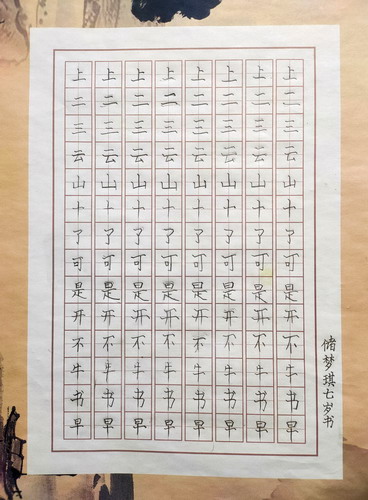 上上上上上上上上
二二二二二二二二
三三三三三三三三
云云云云云云云云
山山山山山山山山
十十十十十十十十
了了了了了了了了
可可可可可可可可
是是是是是是是是
开开开开开开开开
不不不不不不不不
牛牛牛牛牛牛牛牛
书书书书书书书书
早早早早早早早早
储梦琪七岁书